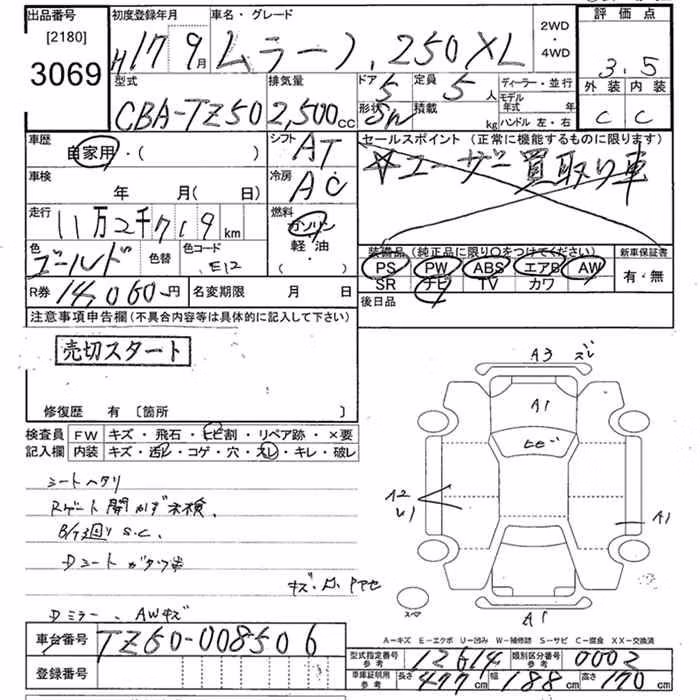 出品番号 初度登録年月 車名・グレード 2WD ・ 4WD 評価点
[2180] H17 9月 ムラーノ. 250XL 3.5
3069 外装 内装
型式 排気量 ドア 5 定員 5人 ディーラー・並行 C C
CBA-TZ50 2,500cc 形状 SW 積載 kg モデル年式 年
ハンドル 左・右
車歴 自家用・( ) シフト AT セールスポイント (正常に機能するものに限ります)
☆ユーザー買取り車
車検 年 月( 日) 冷房 AC
走行 11万2千719km 燃料 ガソリン 軽油 ・
色 ゴールド 色替 色コード E12 装備品 (純正品に限り〇をつけてください) 新車保証書
PS PW ABS エアB AW 有・無
SR ナビ TV カワ
R券 14,060円 名変期限 月 日 後日品
注意事項申告欄(不具合内容等は具体的に記入して下さい)
売切スタート
修復歴 有 [箇所 ]
検査員記入欄 FW キズ・飛石・ヒビ割・リペア跡・×要
内装 キズ・汚レ・コゲ・穴・スレ・キレ・破レ
シートヘタリ
Rゲート開かず未検.
B/下廻り S.C.
Dミラー、AWキズ
A3 ズレ
A1
ヒビ
A2
A1
A1
スペア
A-キズ E-エクボ U-凹み W-補修跡 S-サビ C-腐食 XX-交換済
車台番号 TZ50-008506 型式指定番号 参考 12614 類別区分番号 参考 0002
登録番号 車庫証明用 参考 長さ 477cm 幅 188cm 高さ 170cm